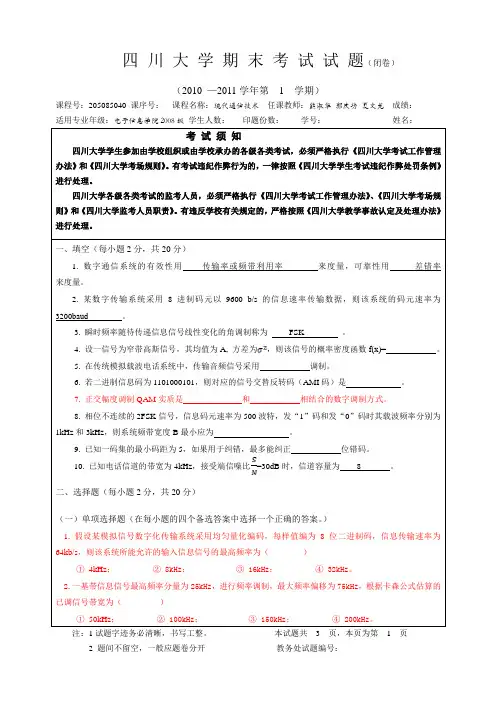 四 川 大 学 期 末 考 试 试 题(闭卷)
（2010 —2011学年第 1 学期）
课程号：205085040 课序号： 课程名称：现代通信技术 任课教师： 成绩：
适用专业年级：电子信息学院2008级 学生人数： 印题份数： 学号： 姓名：
考 试 须 知
四川大学学生参加由学校组织或由学校承办的各级各类考试，必须严格执行《四川大学考试工作管理
办法》和《四川大学考场规则》。有考试违纪作弊行为的，一律按照《四川大学学生考试违纪作弊处罚条例》
进行处理。
四川大学各级各类考试的监考人员，必须严格执行《四川大学考试工作管理办法》、《四川大学考场规
则》和《四川大学监考人员职责》。有违反学校有关规定的，严格按照《四川大学教学事故认定及处理办法》
进行处理。
一、填空（每小题2分，共20分）
1. 数字通信系统的有效性用 传输率或频带利用率 来度量，可靠性用 差错率
来度量。
2. 某数字传输系统采用 8 进制码元以 9600 b/s 的信息速率传输数据，则该系统的码元速率为
3200baud 。
3. 瞬时频率随待传递信息信号线性变化的角调制称为 FSK 。
4. 设一信号为窄带高斯信号，其均值为A, 方差为σ²，则该信号的概率密度函数 f(x)= 。
5. 在传统模拟载波电话系统中，传输音频信号采用 调制。
6. 若二进制信息码为1101000101，则对应的信号交替反转码（AMI码）是 。
7. 正交幅度调制QAM实质是 和 相结合的数字调制方式。
8. 相位不连续的2FSK信号，信息码元速率为500波特，发“1”码和发“0”码时其载波频率分别为
1kHz和3kHz，则系统频带宽度B最小应为 。
9. 已知一码集的最小码距为5，如果用于纠错，最多能纠正 位错码。
10. 已知电话信道的带宽为4kHz，接受端信噪比S/N=30dB时，信道容量为 8 。
二、选择题（每小题2分，共20分）
（一）单项选择题（在每小题的四个备选答案中选择一个正确的答案。）
1. 假设某模拟信号数字化传输系统采用均匀量化编码，每样值编为 8 位二进制码，信息传输速率为
64kb/s，则该系统所能允许的输入信息信号的最高频率为（ ）
① 4kHz； ② 8kHz； ③ 16kHz； ④ 32kHz。
2.一基带信息信号最高频率分量为25kHz，进行频率调制，最大频率偏移为75kHz，根据卡森公式估算的
已调信号带宽为（ ）
① 50kHz； ② 100kHz； ③ 150kHz； ④ 200kHz。
注：1试题字迹务必清晰，书写工整。 本试题共 3 页，本页为第 1 页
2 题间不留空，一般应题卷分开 教务处试题编号：